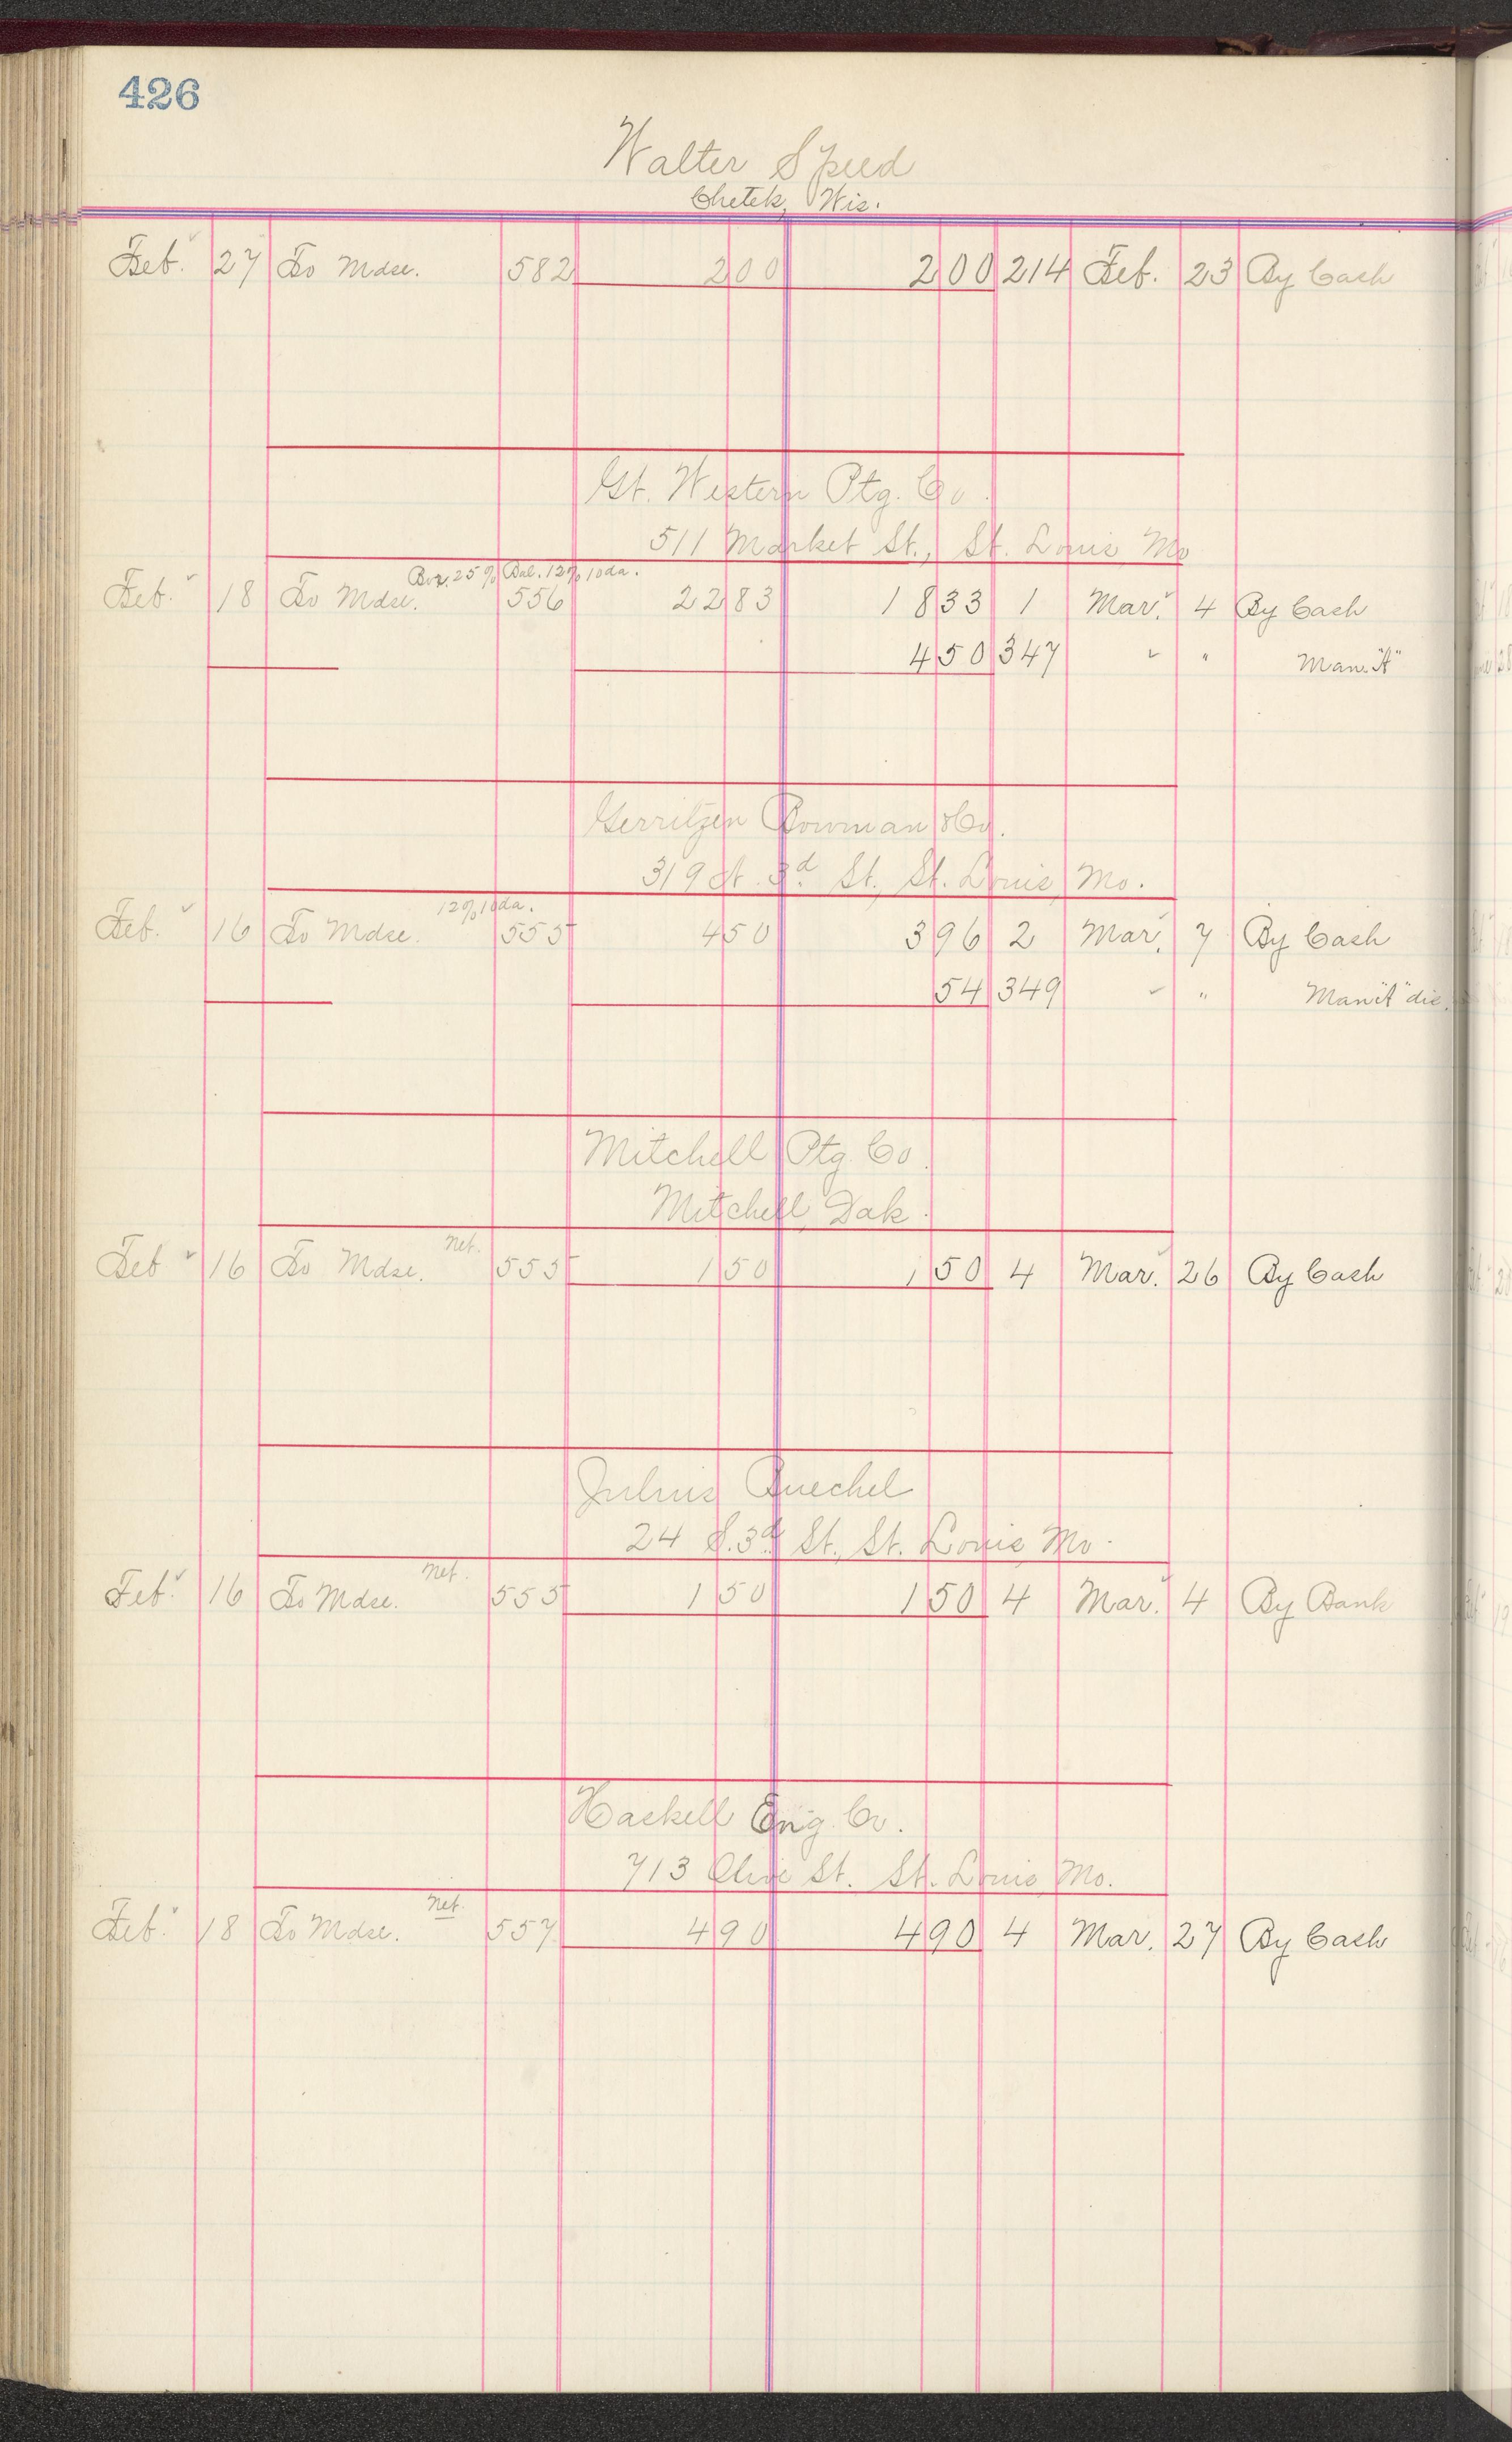 426
Walter Speed
Chetek, Wis.
Feb. 27 To Mdse. 582 200 200 214 Feb. 23 By Cash
Gt. Western Ptg. Co.
511 Market St., St. Louis, Mo
Box. 25% Bal. 12% 10da.
Feb. 18 To Mdse. 556 2283 1833 1 Mar. 4 By Cash
450 347 " Man. "A"
Gerritzen Bowman & Co.
319 N. 3d St., St. Louis, Mo.
12% 10da.
Feb. 16 To Mdse. 555 450 396 2 Mar. 7 By Cash
54 349 " Man "A" dis.
Mitchell Ptg. Co.
Mitchell, Dak.
Net.
Feb 16 To Mdse. 555 150 150 4 Mar. 26 By Cash
Julius Buechel
24 S. 3d St., St. Louis, Mo.
Net.
Feb. 16 To Mdse. 555 150 150 4 Mar. 4 By Bank
Haskell Eng. Co.
713 Olive St. St. Louis, Mo.
Net.
Feb. 18 To Mdse. 557 490 490 4 Mar. 27 By Cash